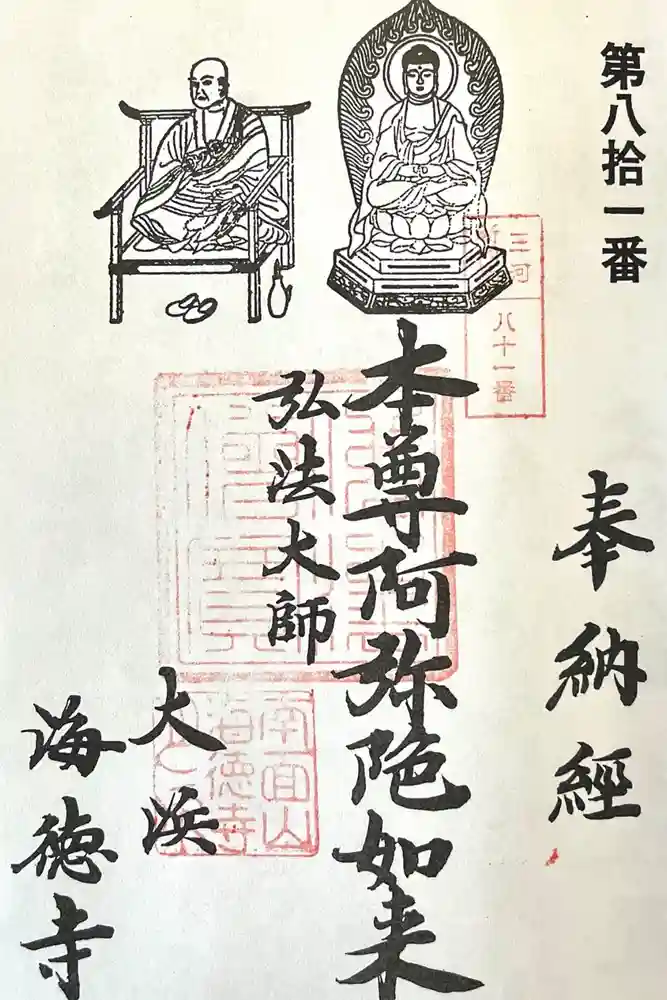 第八拾一番
奉納經
三河
新
八十一番
本尊阿弥陀如来
弘法大師
大浜
海徳寺
南面山
海徳寺